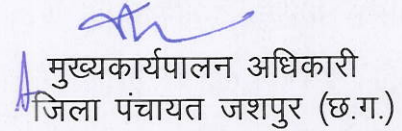 मुख्यकार्यपालन अधिकारी
जिला पंचायत जशपुर (छ.ग.)